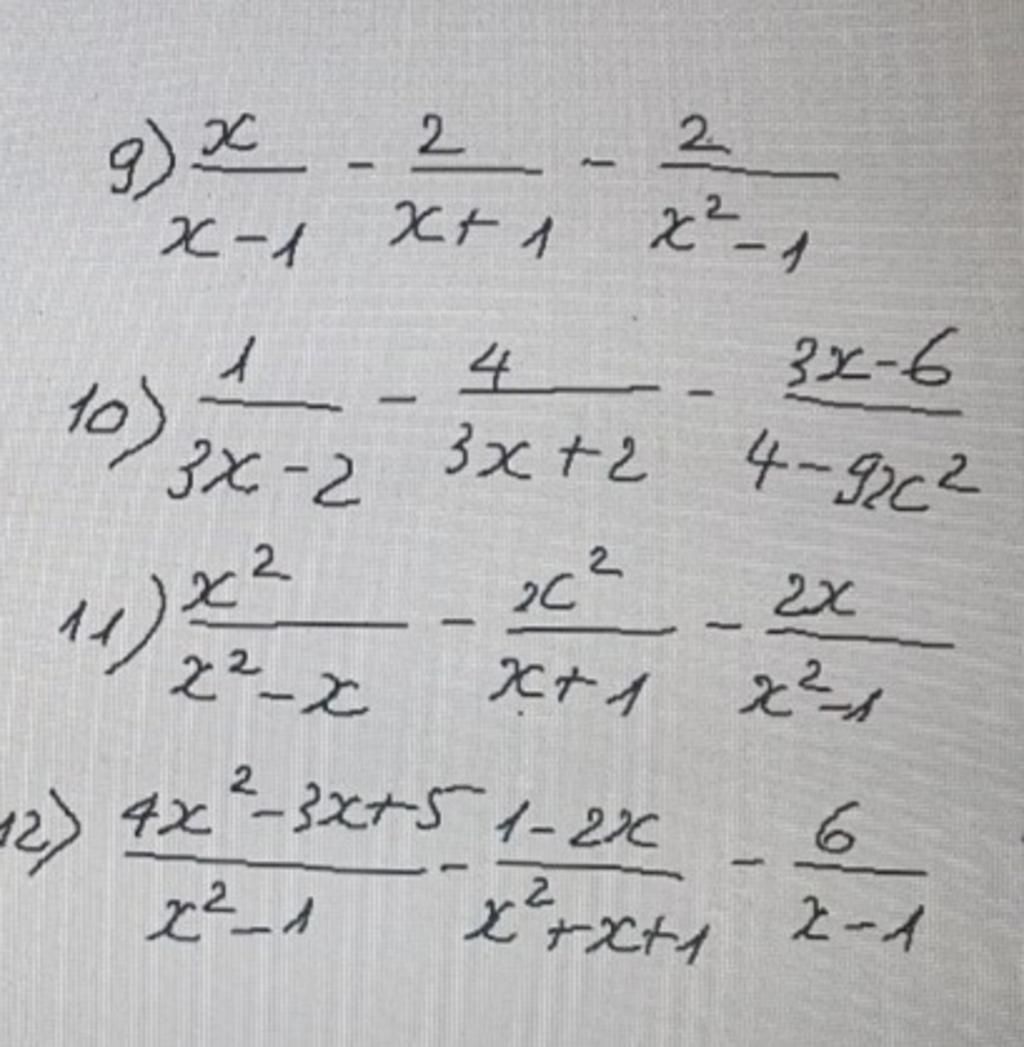 9) x/(x-1) - 2/(x+1) - 2/(x²-1)
10) 1/(3x-2) - 4/(3x+2) - (3x-6)/(4-9x²)
11) x²/(x²-x) - x²/(x+1) - 2x/(x²-1)
12) (4x²-3x+5)/(x²-1) - (1-2x)/(x²+x+1) - 6/(x-1)